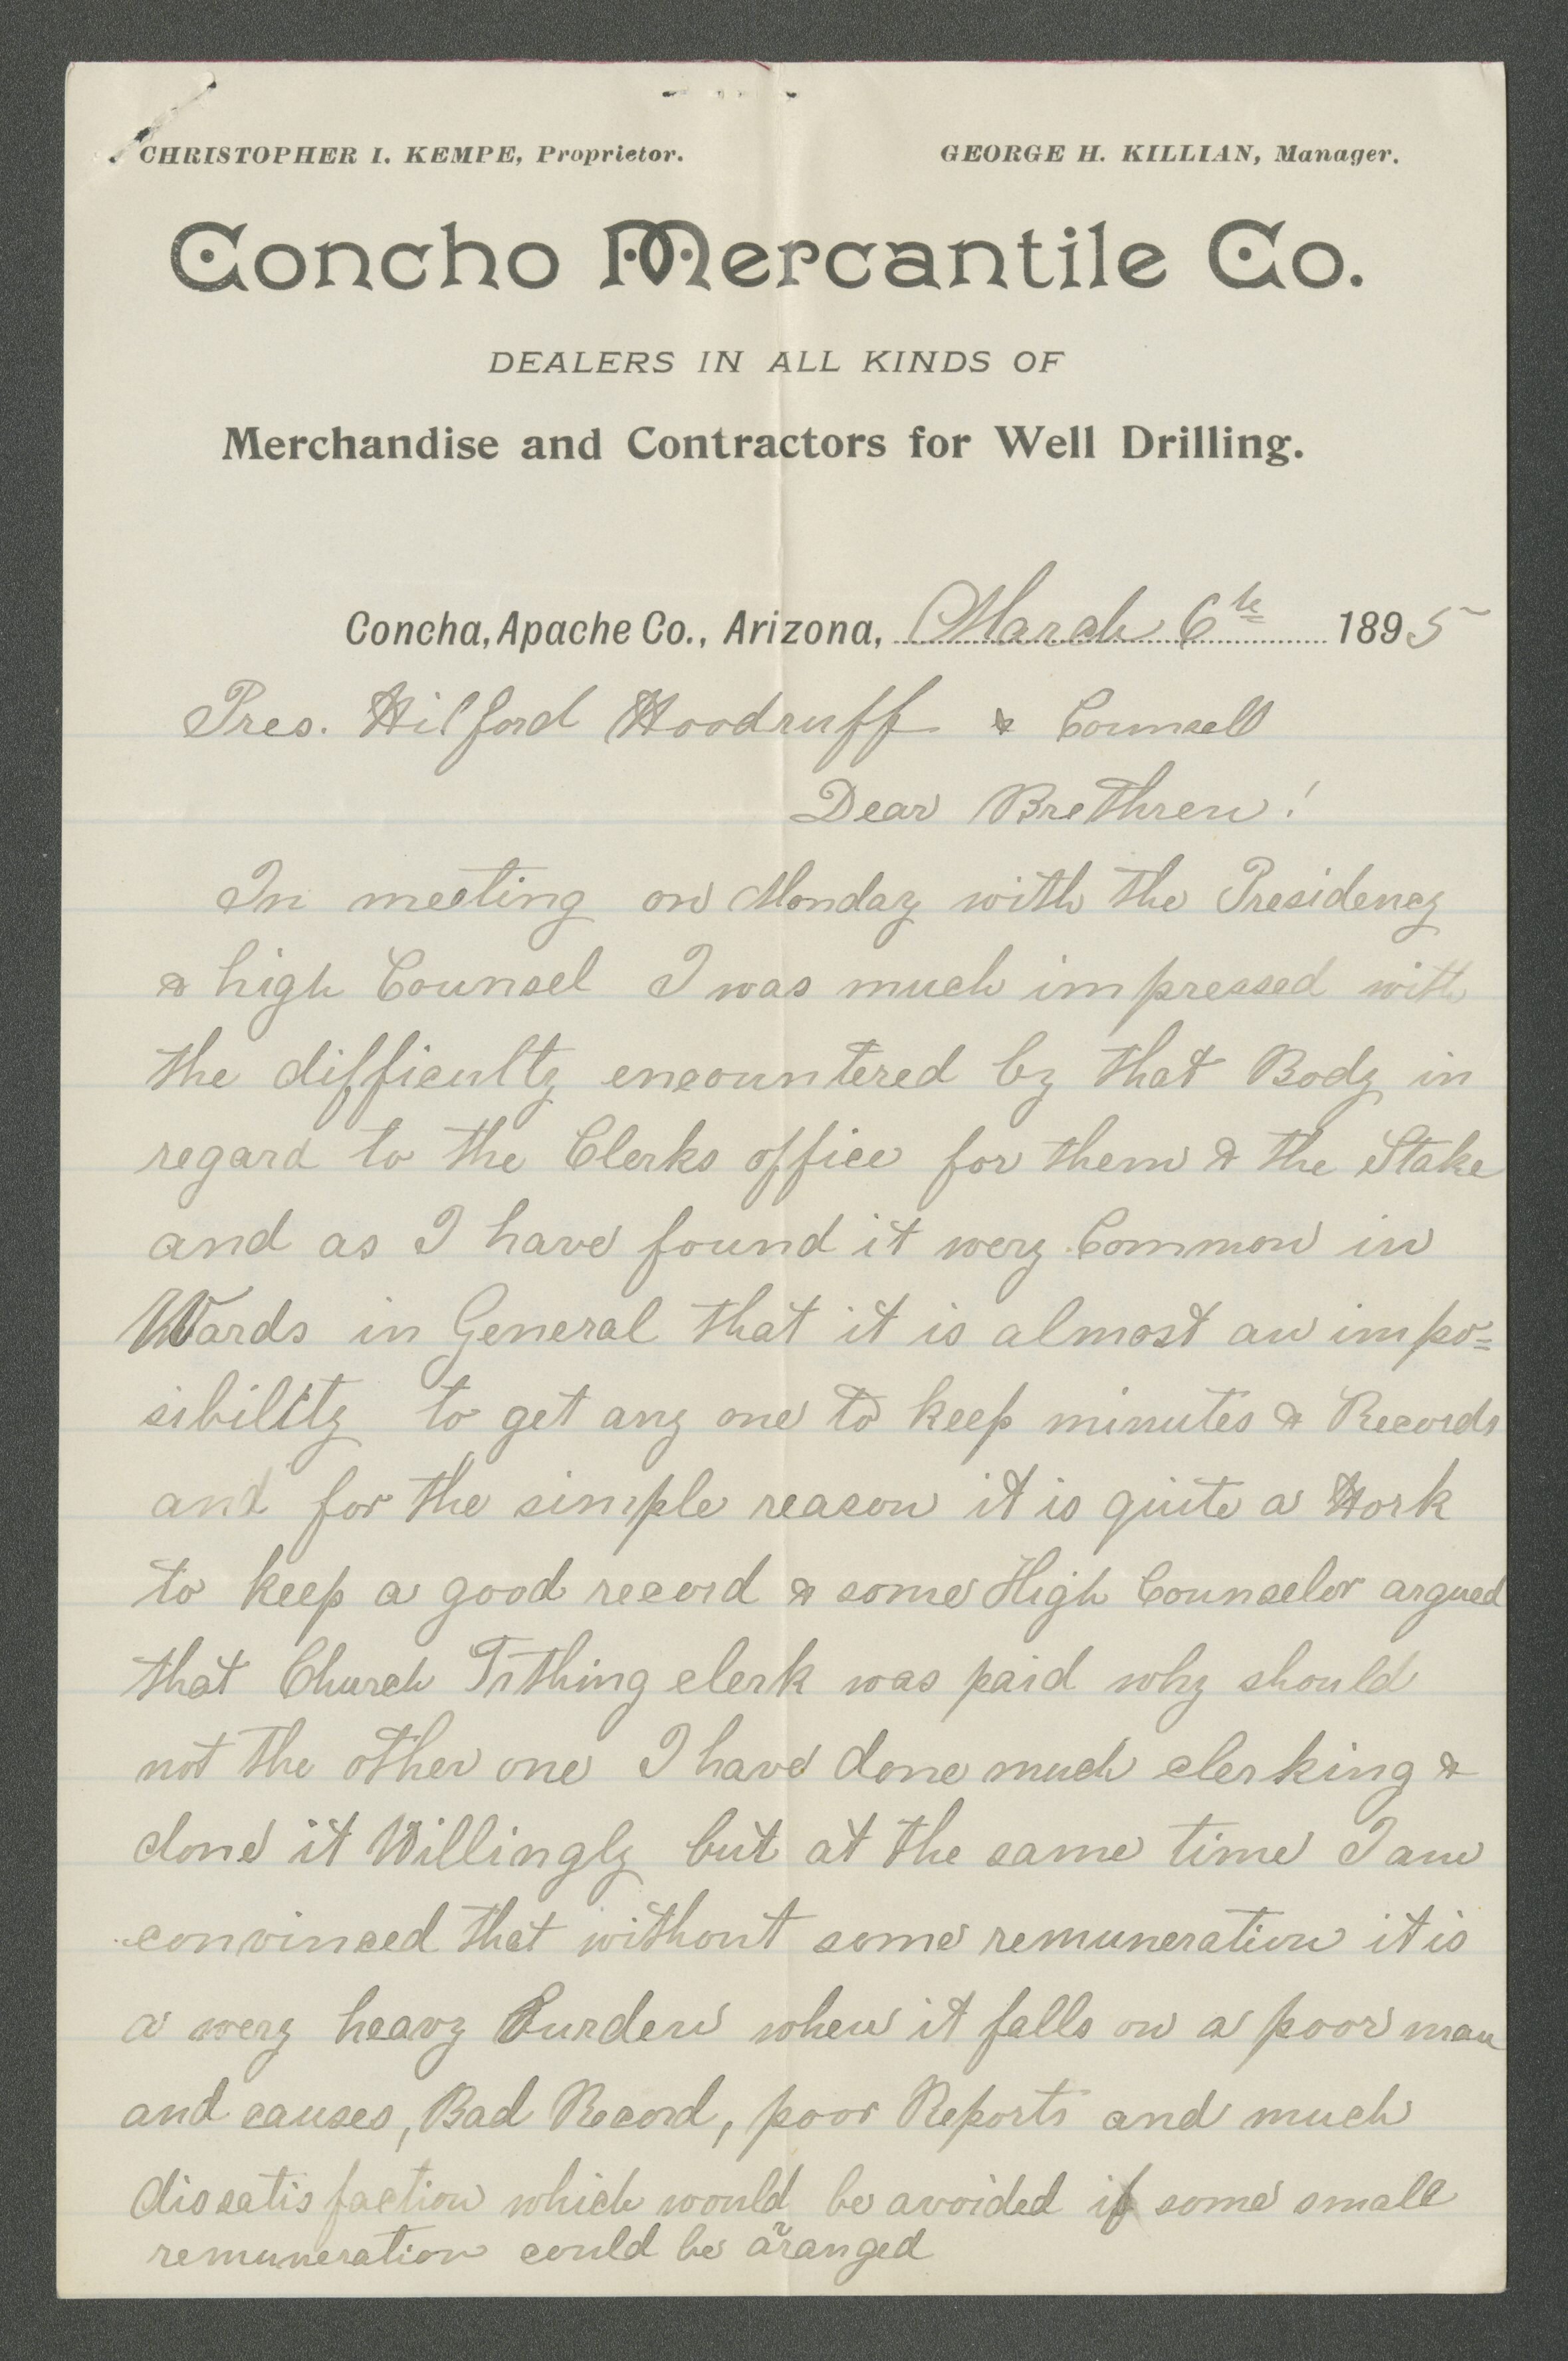 CHRISTOPHER I. KEMPE, Proprietor. GEORGE H. KILLIAN, Manager.
Concho Mercantile Co.
DEALERS IN ALL KINDS OF
Merchandise and Contractors for Well Drilling.
Concha, Apache Co., Arizona, March 6th 1895
Pres. Wilford Woodruff & Counsell
Dear Brethren!
In meeting on Monday with the Presidency
& high Counsel I was much impressed with
the difficulty encountered by that Body in
regard to the Clerks office for them & the Stake
and as I have found it wery Common in
Wards in General that it is almost an impo=
sibility to get any one to keep minutes & Records
and for the simple reason it is quite a Work
to keep a good record & some High Counselor argued
that Church Tithing clerk was paid why should
not the other one I have done much clerking &
done it Willingly but at the same time I am
convinced that without some remuneration it is
a wery heavy Burden when it falls on a poor man
and causes, Bad Record, poor Reports and much
dissatisfaction which would be avoided if some small
remuneration could be aranged